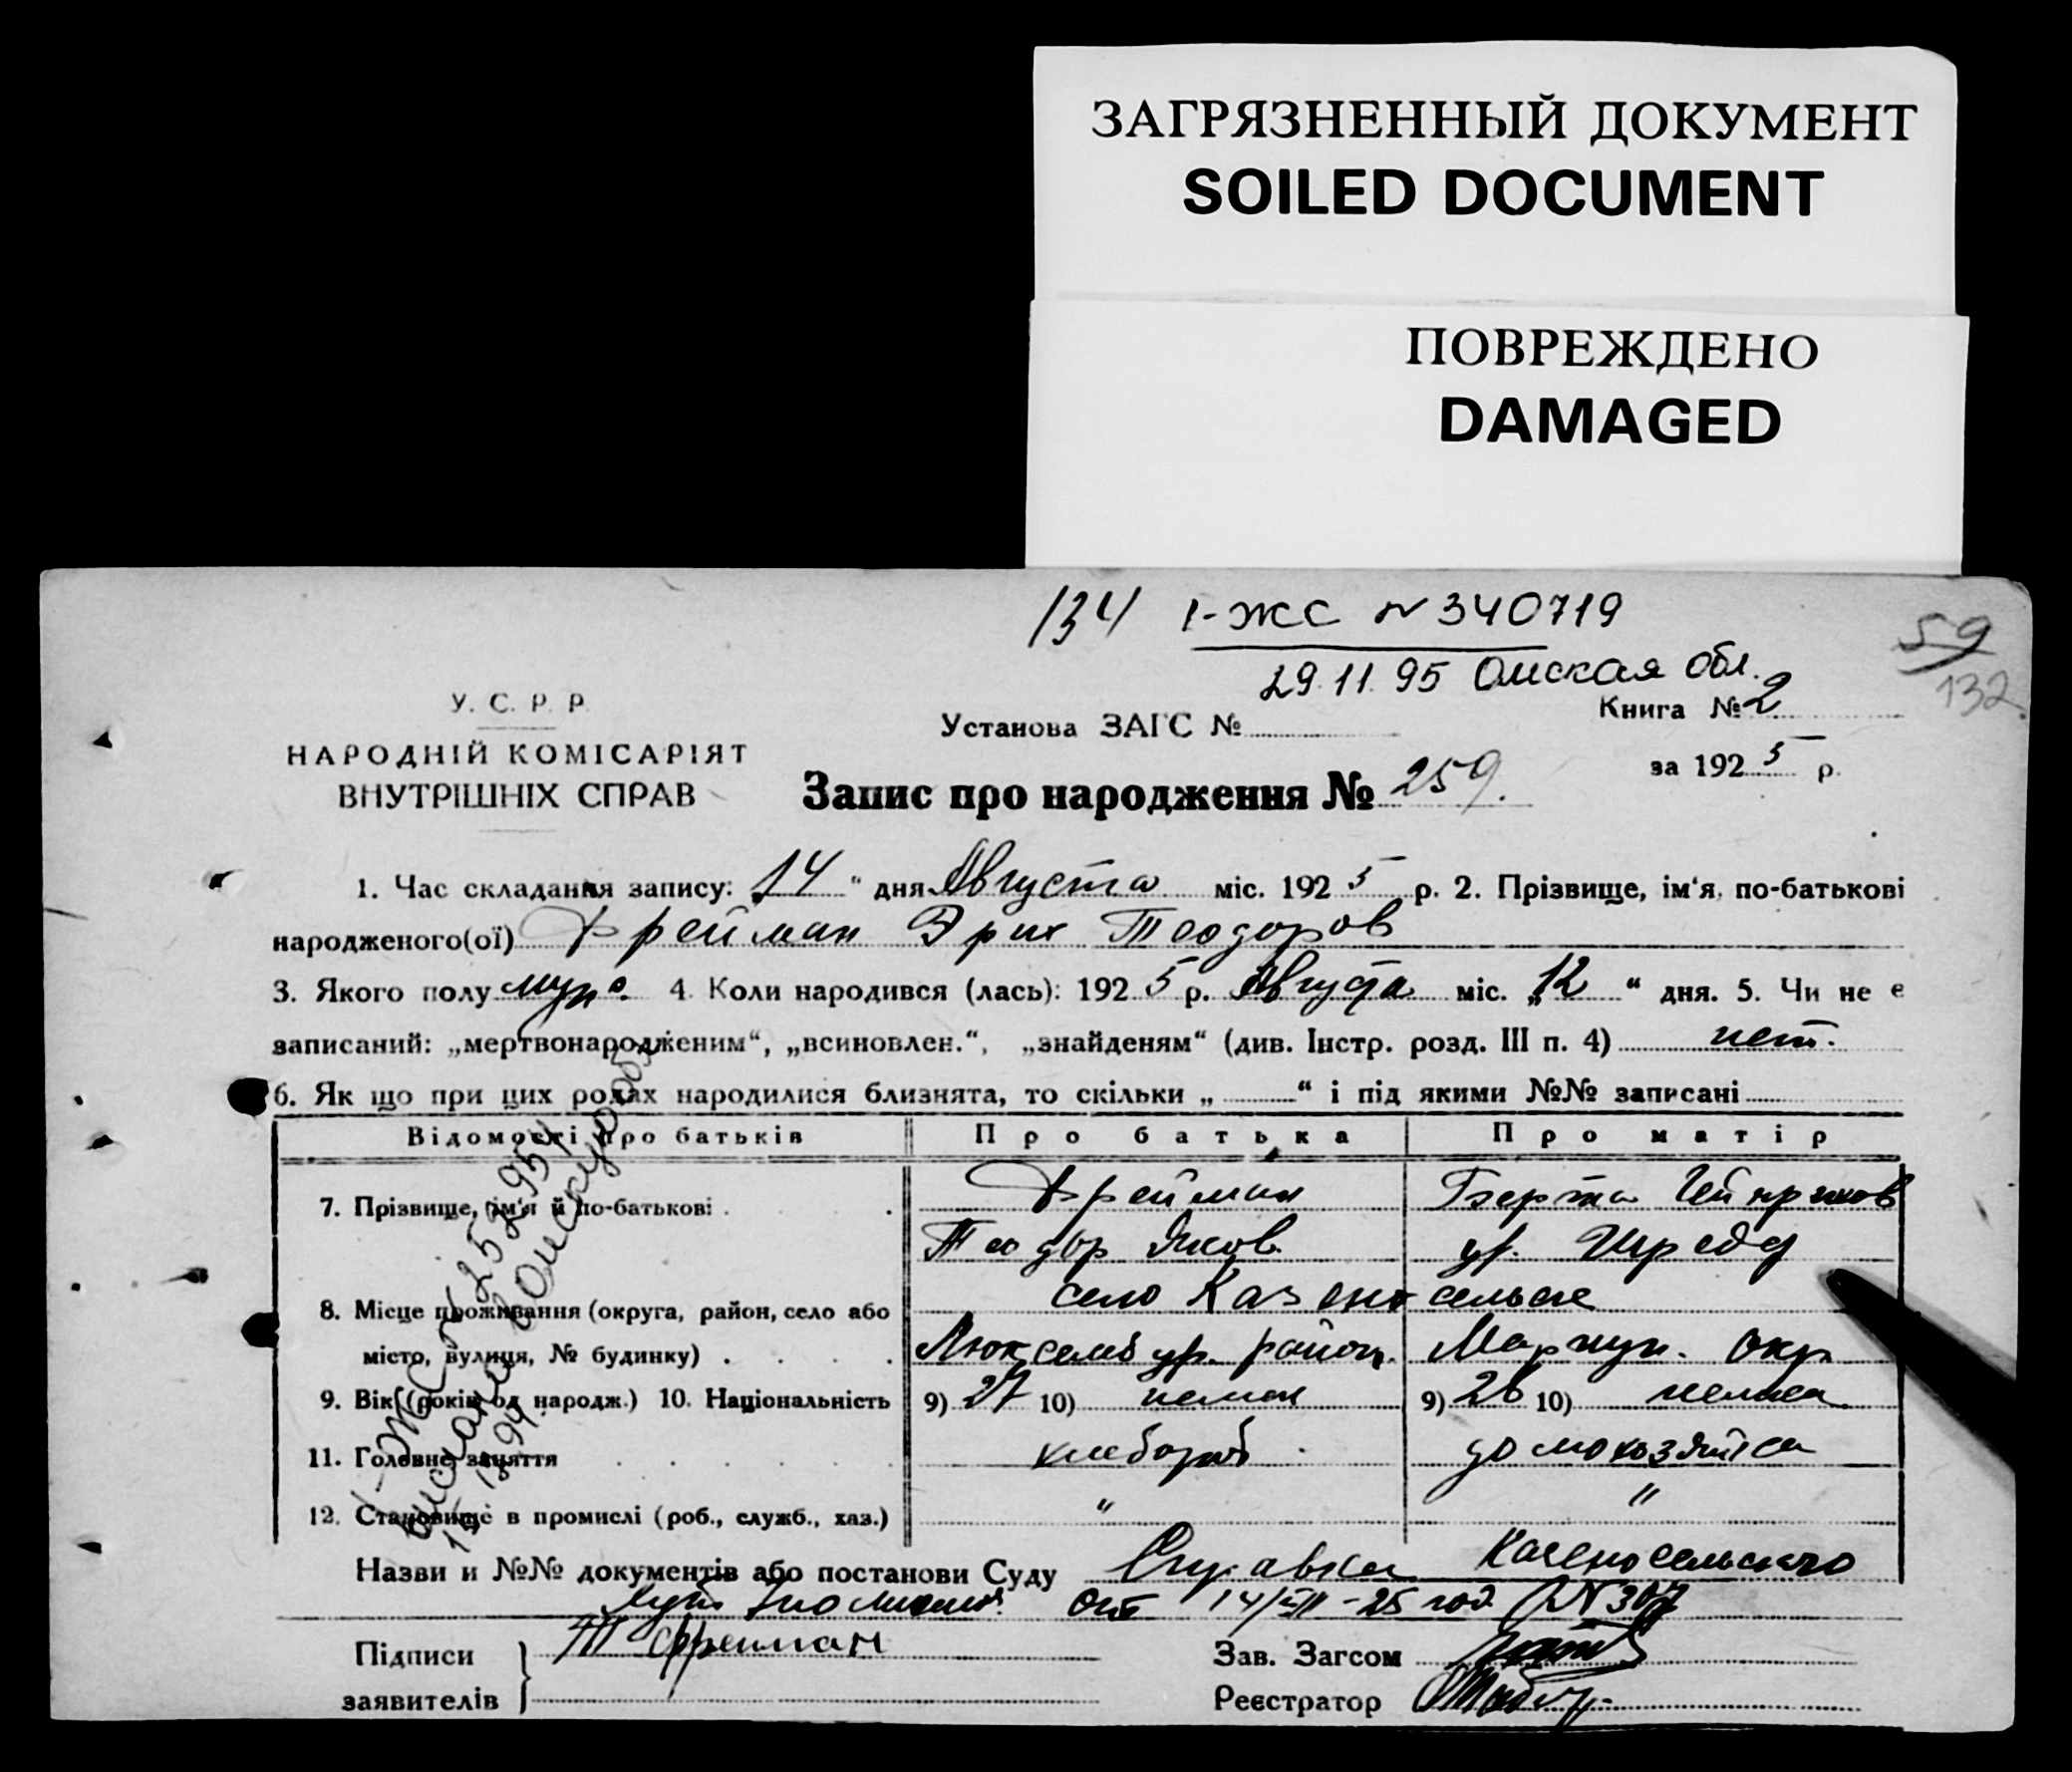 ЗАГРЯЗНЕННЫЙ ДОКУМЕНТ
SOILED DOCUMENT
ПОВРЕЖДЕНО
DAMAGED
134 1-ЖС N 340719
29.11.95 Омская обл.
59
132
У. С. Р. Р.
НАРОДНІЙ КОМІСАРІЯТ
ВНУТРІШНІХ СПРАВ
Установа ЗАГС №
Книга № 2
за 1925 р.
Запис про народження № 259.
1. Час складання запису: 14 " дня Августа міс. 1925 р. 2. Прізвище, ім'я, по-батькові
народженого(ої) Фрейман Эрих Теодоров
3. Якого полу муж. 4. Коли народився (лась): 1925 р. Августа міс. „12 “ дня. 5. Чи не є
записаний: „мертвонародженим“, „всиновлен.“, „знайденям“ (див. Інстр. розд. III п. 4) нет.
6. Як що при цих родах народилися близнята, то скільки „ “ і під якими №№ записані
Відомості про батьків Про батька Про матір
7. Прізвище, ім'я й по-батькові Фрейман Берта
Теодор Яков. ур. Шредер
8. Місце проживання (округа, район, село або село Казеносельск
місто, вулиця, № будинку) Люксембур. район. Мариуп. окр.
9. Вік (років од народж.) 10. Національність 9) 27 10) немец 9) 26 10) немка
11. Головне заняття хлебороб домохозяйка
12. Становище в промислі (роб., служб., хаз.) " "
1-ЖС
Омскую обл.
Назви и №№ документів або постанови Суду Справка Казеносельского
от 14/VIII-25 год N 307
Підписи
заявителів
Т Фрейман
Зав. Загсом
Реєстратор